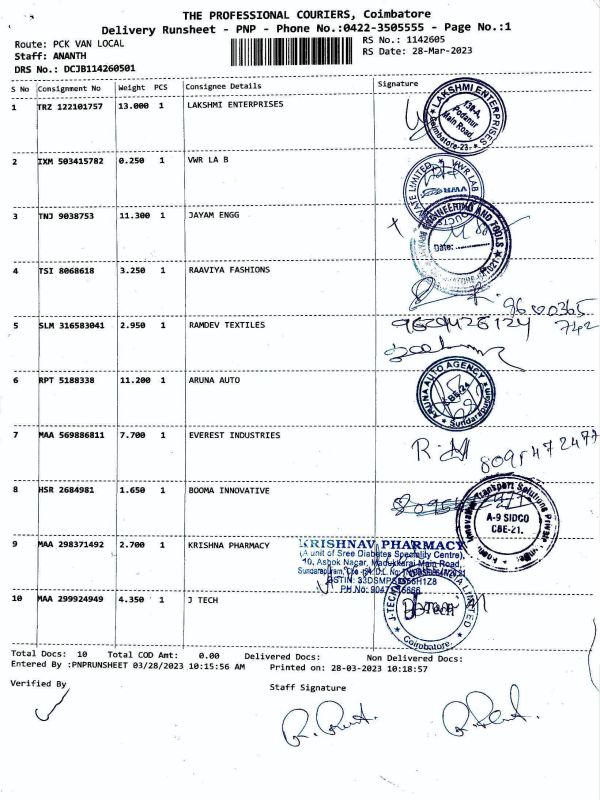 THE PROFESSIONAL COURIERS, Coimbatore
Delivery Runsheet - PNP - Phone No.:0422-3505555 - Page No.:1
Route: PCK VAN LOCAL
RS No.: 1142605
Staff: ANANTH
RS Date: 28-Mar-2023
DRS No.: DCJB114260501
S No Consignment No Weight PCS Consignee Details Signature
1 TRZ 122101757 13.000 1 LAKSHMI ENTERPRISES
LAKSHMI ENTERPRISES
138-A,
Podanur
Main Road,
Coimbatore-23.
2 IXM 503415782 0.250 1 VWR LA B
VWR LAB
VWR
3 TNJ 9038753 11.300 1 JAYAM ENGG
ENGINEERING AND TOOLS
Date:
4 TSI 8068618 3.250 1 RAAVIYA FASHIONS
5 SLM 316583041 2.950 1 RAMDEV TEXTILES
9629426124
742
6 RPT 5188338 11.200 1 ARUNA AUTO
ARUNA AUTO AGENCY
CBE-24
Sundarapuram
7 MAA 569886811 7.700 1 EVEREST INDUSTRIES
8 HSR 2684981 1.650 1 BOOMA INNOVATIVE
Innovative Transport Solutions Private
A-9 SIDCO
CBE-21.
9 MAA 298371492 2.700 1 KRISHNA PHARMACY
KRISHNAV PHARMACY
(A unit of Sree Diabetes Speciality Centre),
10, Ashok Nagar, Madukkarai Main Road,
10 MAA 299924949 4.350 1 J TECH
J-TECH
Coimbatore.
Total Docs: 10 Total COD Amt: 0.00 Delivered Docs: Non Delivered Docs:
Entered By :PNPRUNSHEET 03/28/2023 10:15:56 AM Printed on: 28-03-2023 10:18:57
Verified By
Staff Signature